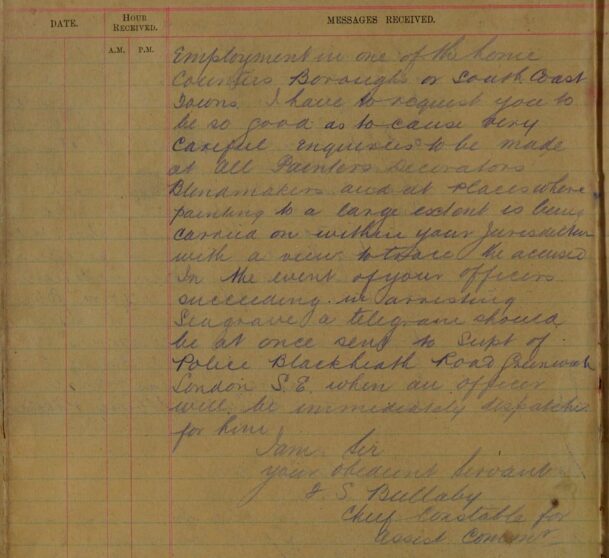 DATE.
HOUR RECEIVED.
MESSAGES RECEIVED.
A.M. P.M.
Employment in one of the home
Counties Boroughs or South Coast
Towns. I have to request you to
be so good as to cause very
careful enquiries to be made
at all Painters Decorators
Blindmakers and at places where
painting to a large extent is being
carried on within your Jurisdiction
with a view to trace the accused
In the event of your officers
succeeding in arresting
Seagrave a telegram should
be at once send to Supt of
Police Blackheath Road Greenwich
London S.E. when an officer
will be immediately dispatched
for him
I am Sir
your obedient Servant
S. Bullaby
Chief Constable for
Assist. Commr